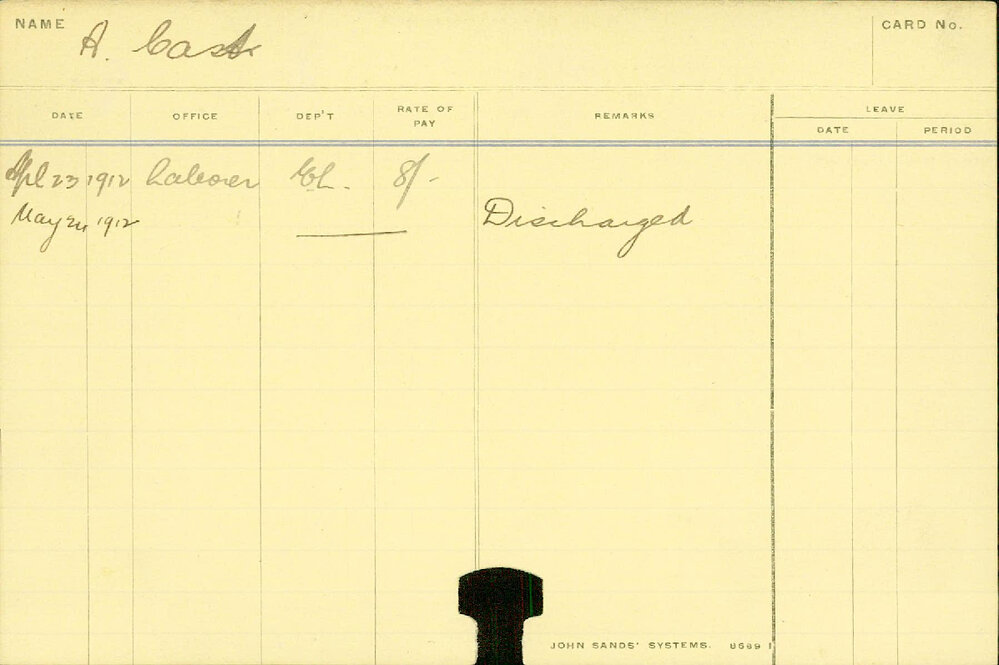 NAME A. Cast CARD No.
LEAVE
DATE OFFICE DEP'T RATE OF PAY REMARKS DATE PERIOD
Apl 23 1912 Laborer 8/-
May 24 1912 Discharged
JOHN SANDS' SYSTEMS. 8689